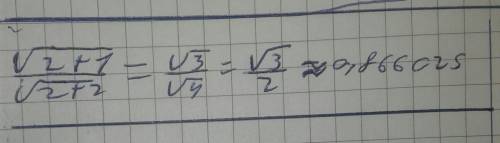 √(2+1)/√(2+2) = √3/√4 = √3/2 ≈ 0,866025